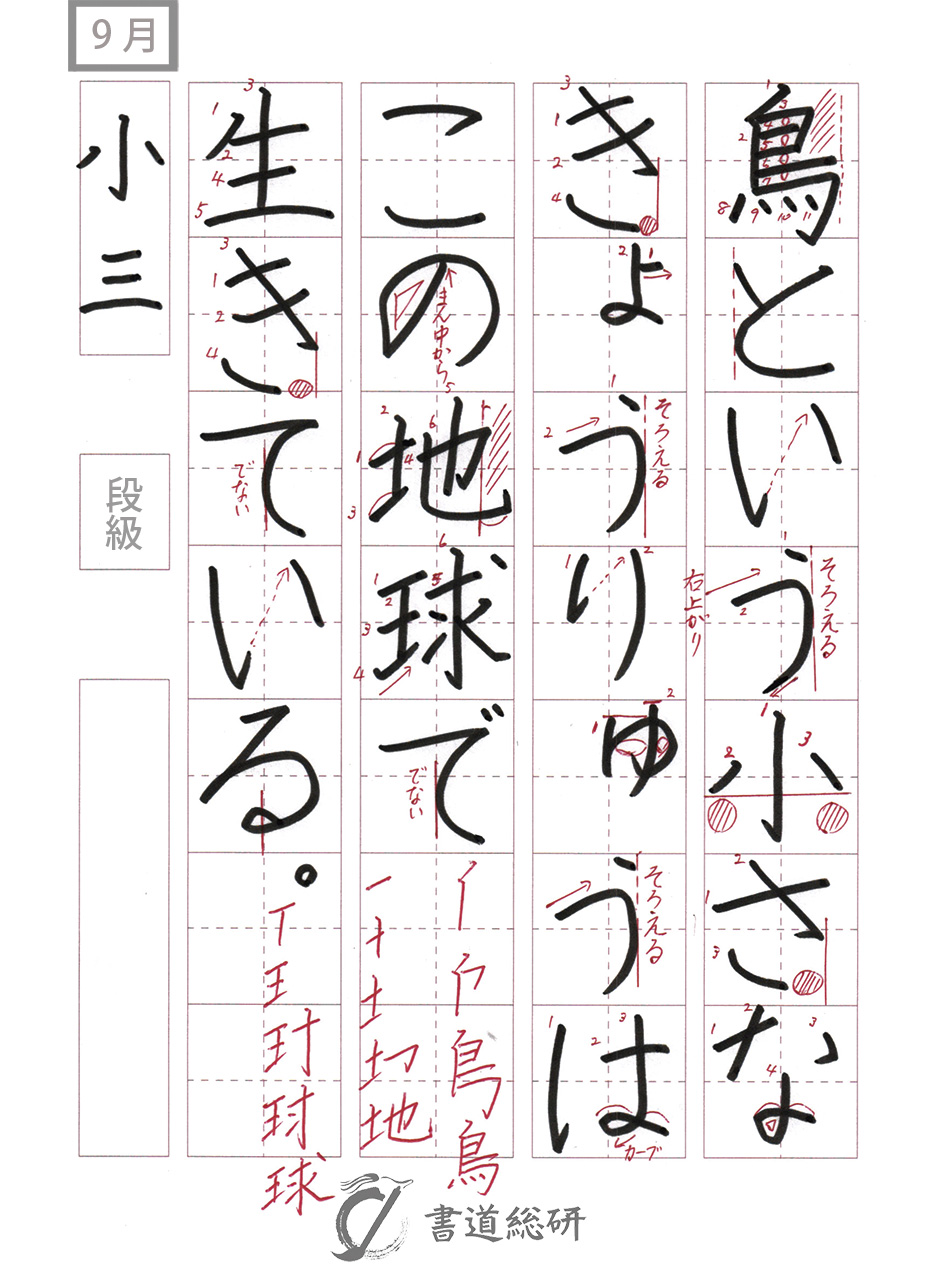 9月
鳥という小さな
きょうりゅうは
この地球で
生きている。
小三
段級
そろえる
右上がり
そろえる
そろえる
カーブ
まん中から
でない
でない
書道総研